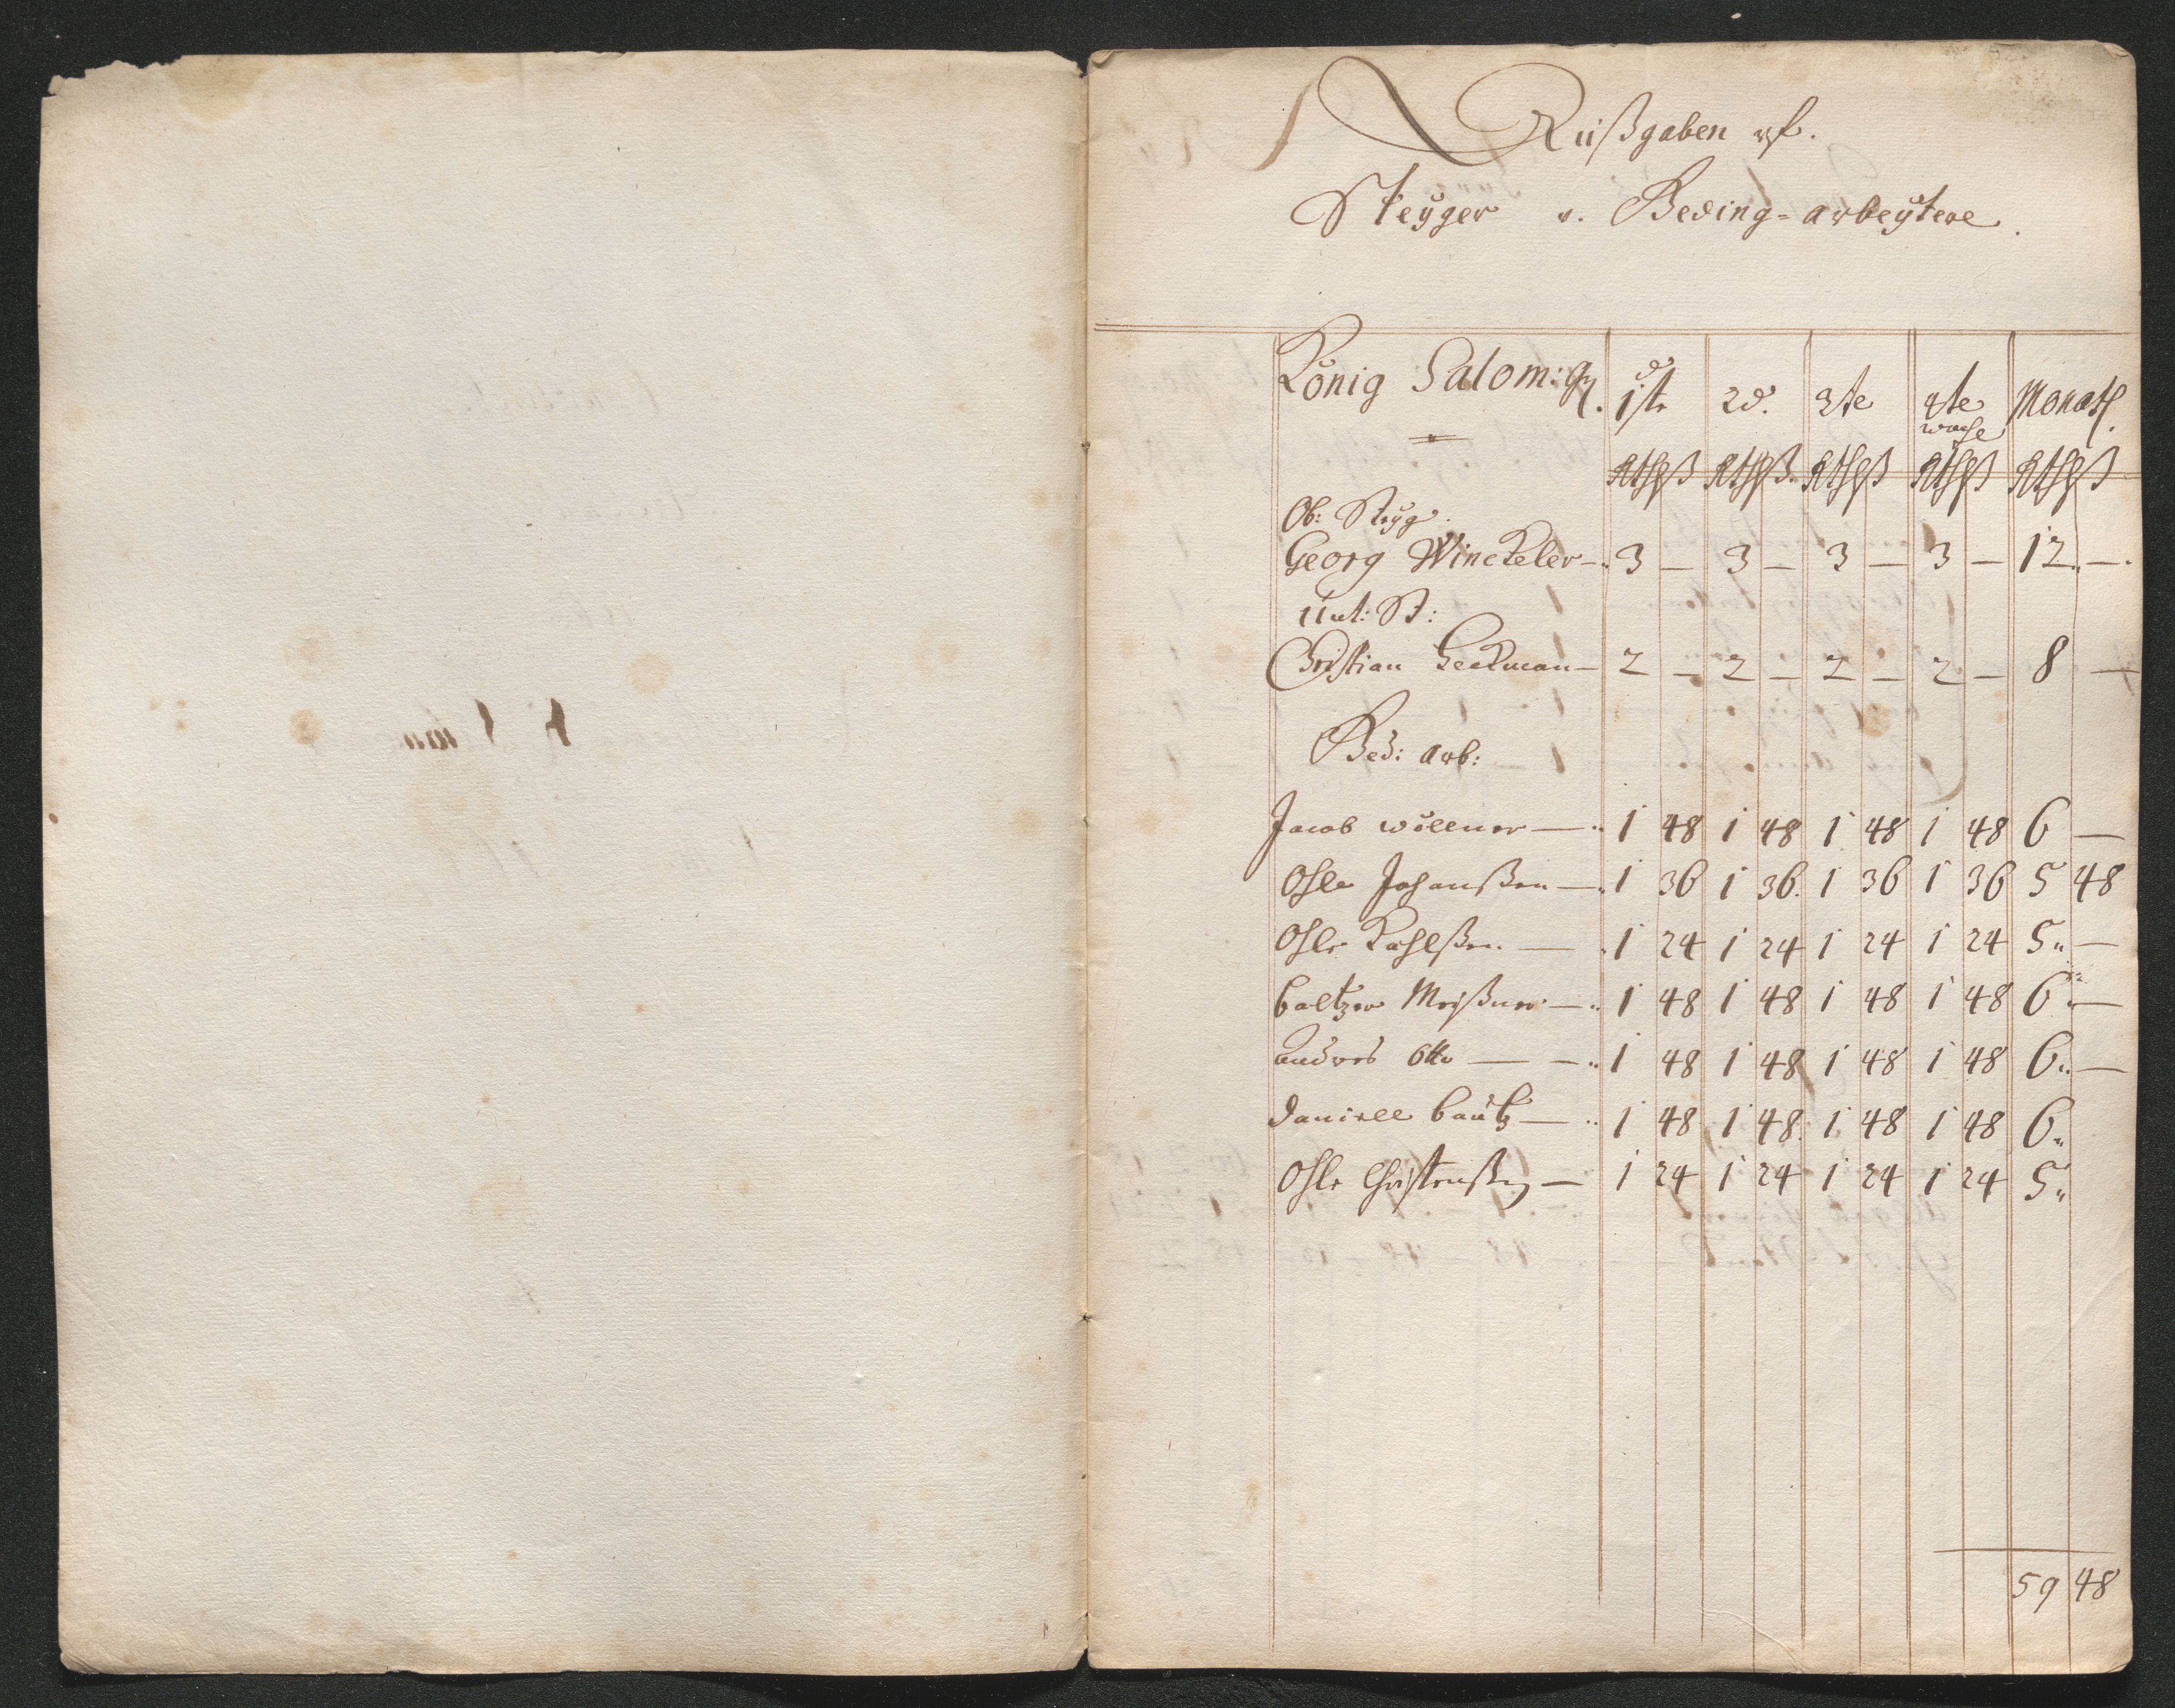 Außgaben uf.
Steÿger u. Beding=arbeÿtere.
König Salom: 1te 2d. 3te 4te woche Monath.
Rthß Rthß Rthß Rthß Rthß
Ob: Steÿg.
Georg Winckeler — 3 — 3 — 3 — 3 — 12 —
Unt: St:
Christian Heckman — 2 — 2 — 2 — 2 — 8 —
Bed: arb:
Jacob Wüllner — 1 48 1 48 1 48 1 48 6 —
Ohle Johanßen — 1 36 1 36. 1 36 1 36 5 48
Ohle Kahlßen. — 1 24 1 24 1 24 1 24 5 —
Baltzer Meißner — 1 48 1 48 1 48 1 48 6 —
Andres Otto — — 1 48 1 48 1 48 1 48 6 —
Daniell Bautz — 1 48 1 48. 1 48 1 48 6
Ohle Christenßen — 1 24 1 24 1 24 1 24 5
59 48